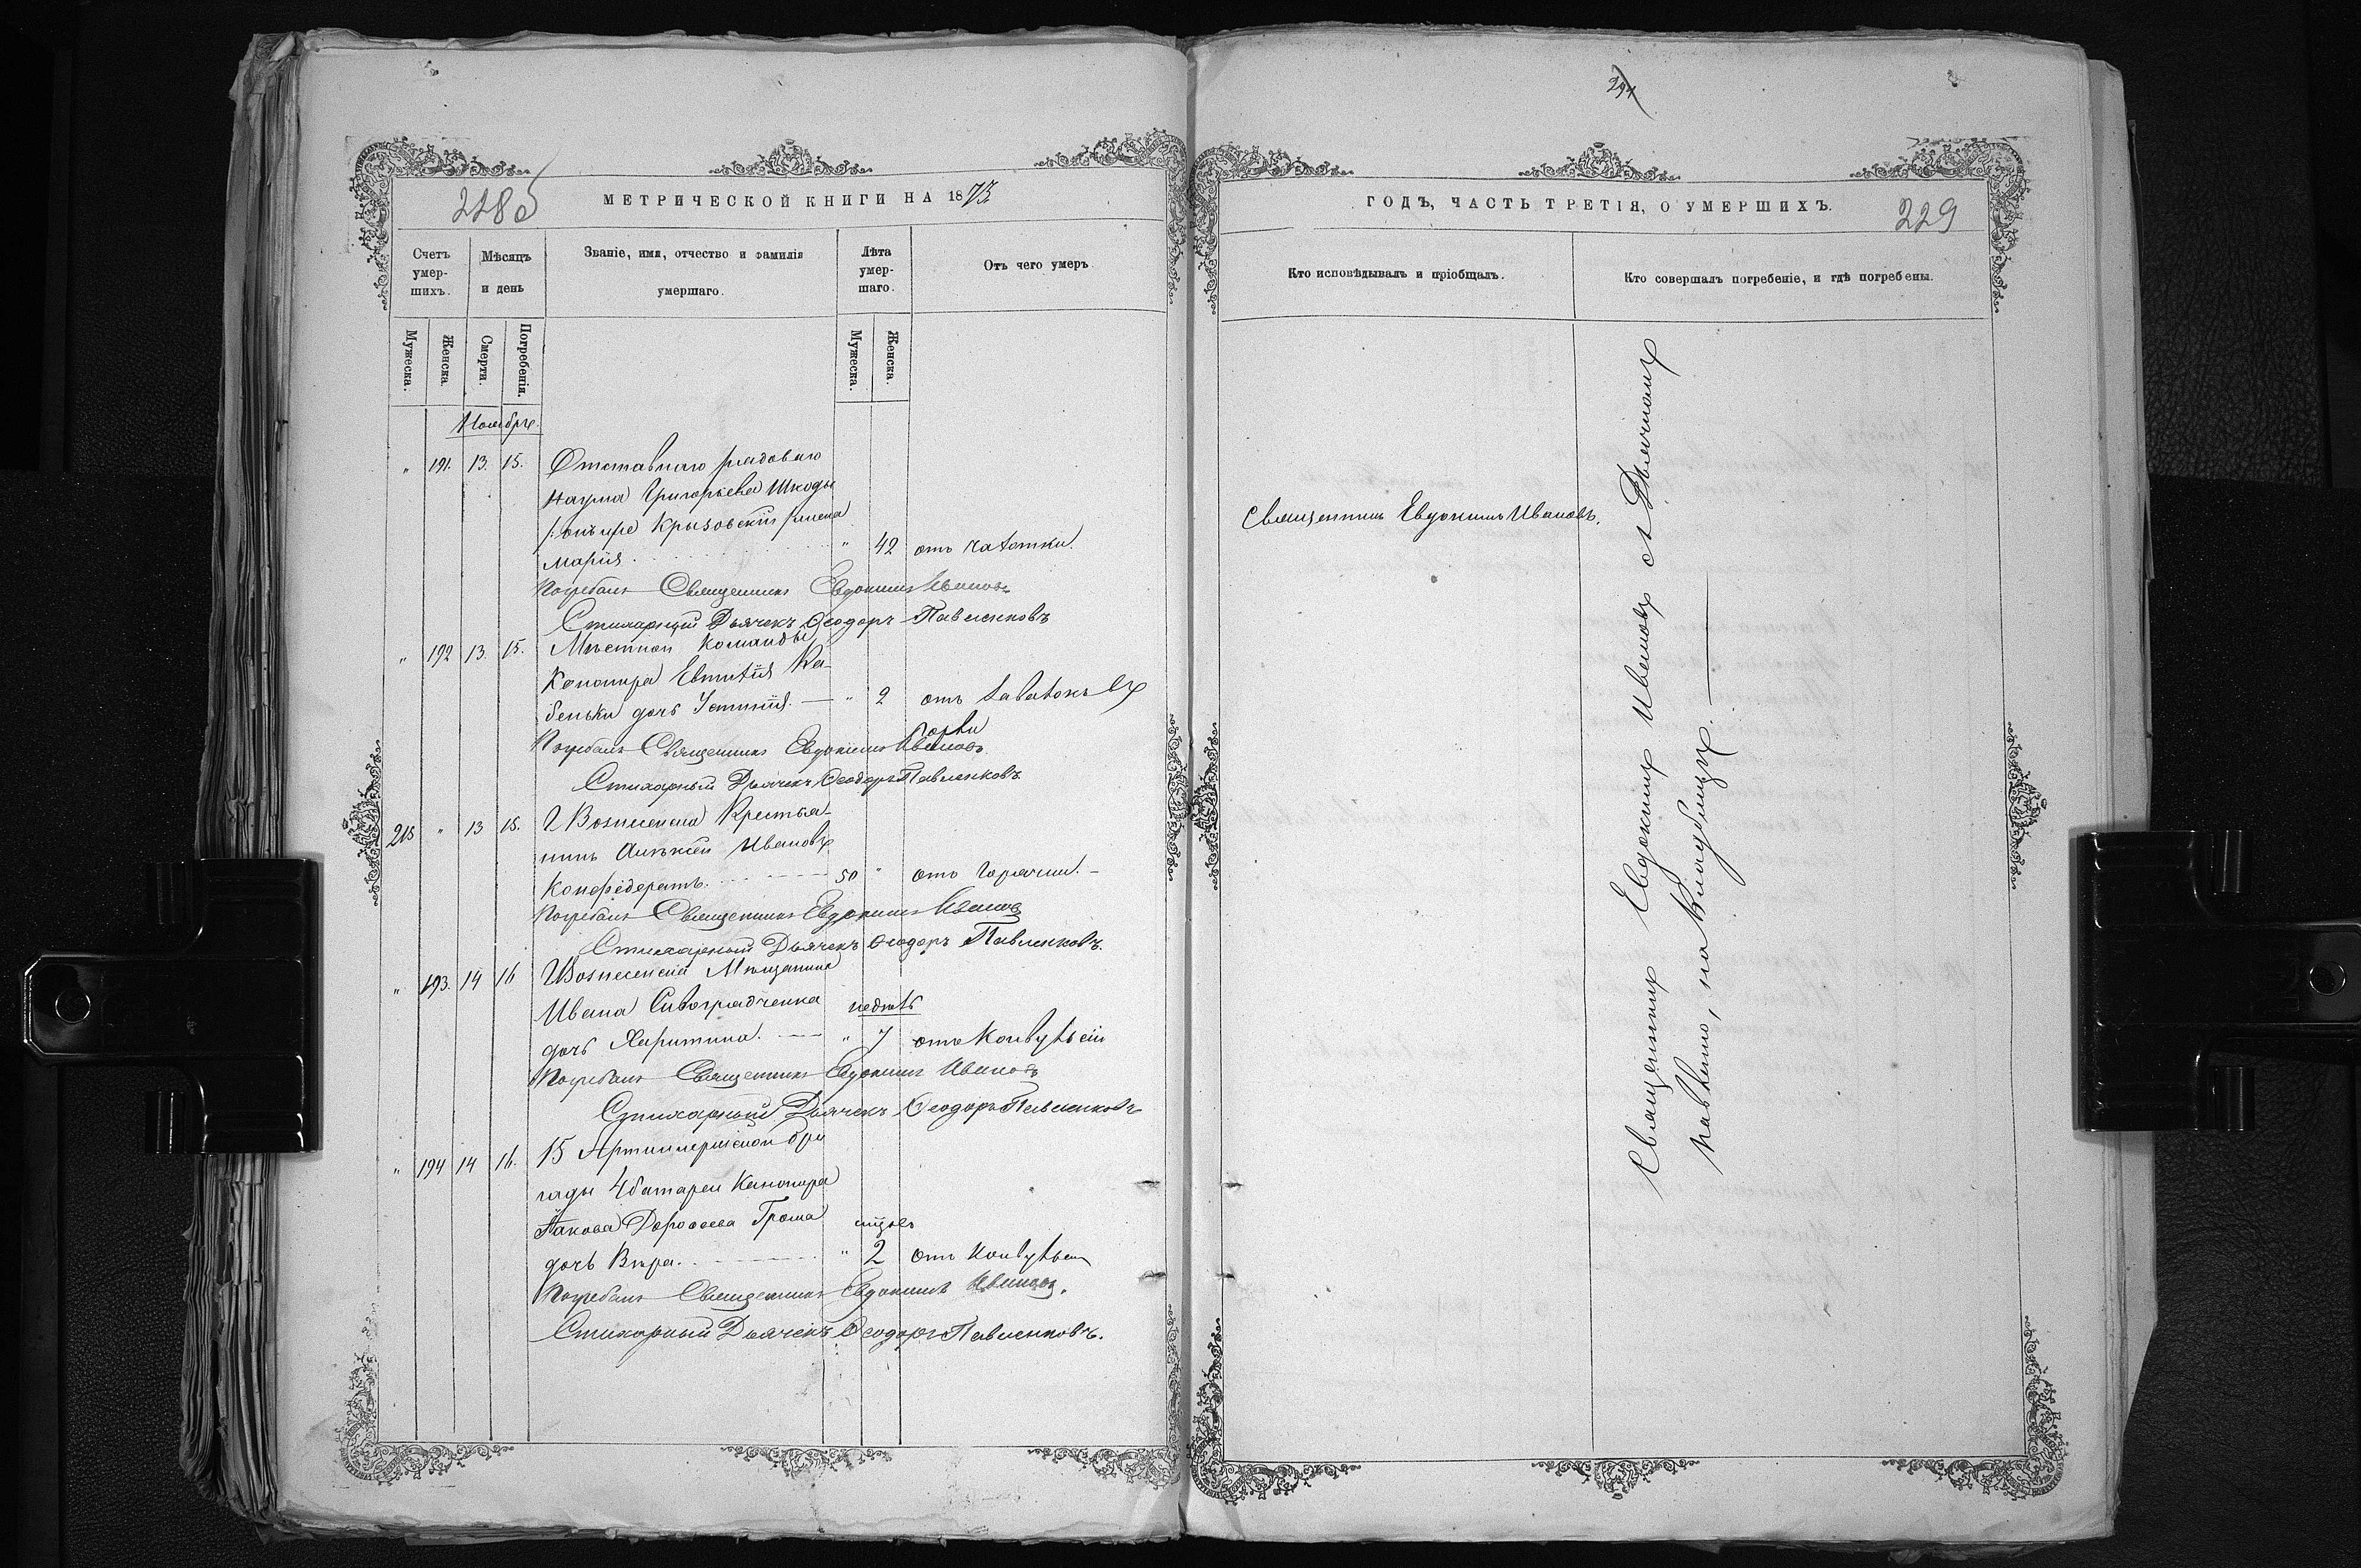 291
2285
МЕТРИЧЕСКОЙ КНИГИ НА 1873
Счетъ умер-шихъ.
Мѣсяцъ и день
Званіе, имя, отчество и фамилія умершаго.
Лѣта умер-шаго.
Отъ чего умеръ
Мужеска.
Женска.
Смерти.
Погребенія.
Мужеска.
Женска.
Ноябрь.
" 191. 13. 15. Отставнаго рядоваго
Наума Григорьева Шкоды
жена
Марія. " 42 отъ чахотки.
Погребалъ Священникъ Евдокимъ Ивановъ
Стихарный Дьячекъ Ѳеодоръ Павленковъ
" 192 13. 15. Мѣстной команды
Канонира Евтихія Ка-
беньки дочь Устинія. — " 2 отъ
Погребалъ Священникъ Евдокимъ Ивановъ
Стихарный Дьячекъ Ѳеодоръ Павленковъ
215 " 13 15. Г Вознесенска Крестья-
нинъ Алексѣй Ивановъ
Конфедератъ. 50 " отъ горячки. -
Погребалъ Священникъ Евдокимъ Ивановъ
Стихарный Дьячекъ Ѳеодоръ Павленковъ.
" 193. 14 16 Мѣщанина
Ивана недѣль
дочь Харитина. — " 7 отъ Конвульсій
Погребалъ Священникъ Евдокимъ Ивановъ
Стихарный Дьячекъ Ѳеодоръ Павленковъ
" 194 14 16. 15 Артиллерійской бри
гады 4 батареи Канонира
Якова Дорофеева Гроша
дочь Вѣра. " 2 отъ Конвульсій
Погребалъ Священникъ Евдокимъ Ивановъ.
Стихарный Дьячекъ Ѳеодоръ Павленковъ.
ГОДЪ, ЧАСТЬ ТРЕТІЯ, О УМЕРШИХЪ.
229
Кто исповѣдывалъ и пріобщалъ.
Кто совершалъ погребеніе, и гдѣ погребены.
Священникъ Евдокимъ Ивановъ.
Священникъ Евдокимъ Ивановъ съ Дьячкомъ
Павленко, на Кладбищѣ. —